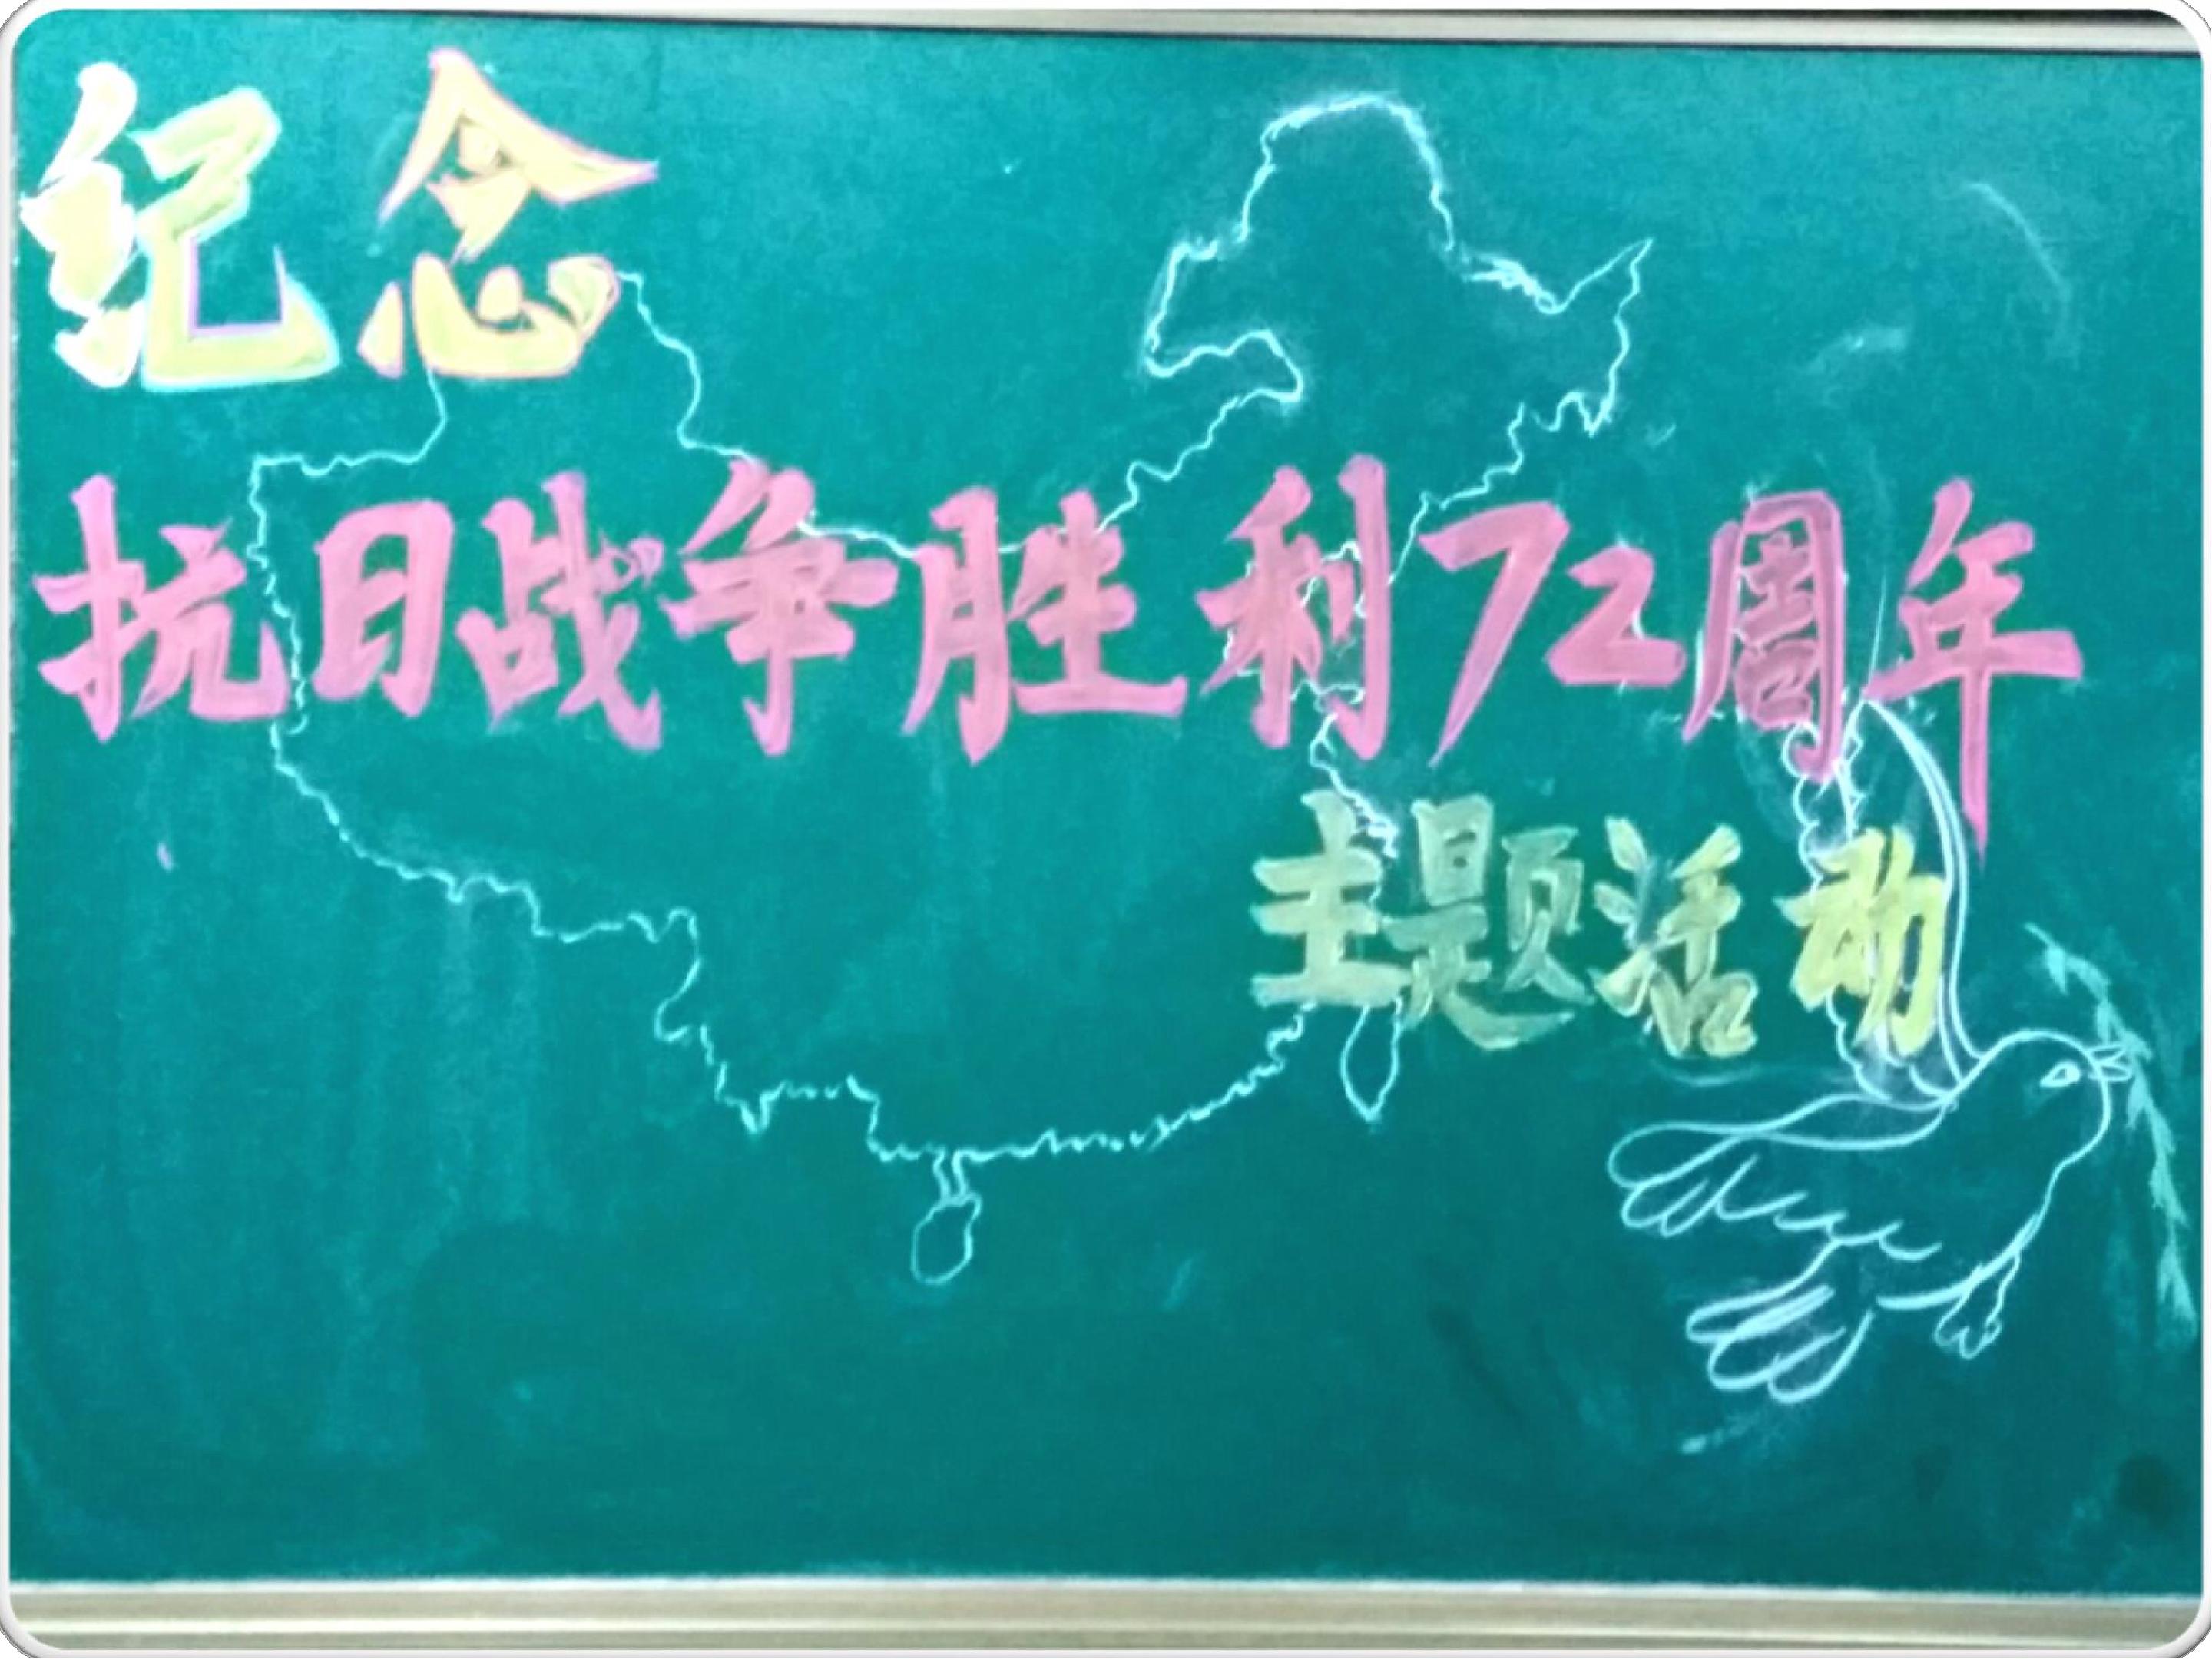 纪念
抗日战争胜利72周年
主题活动